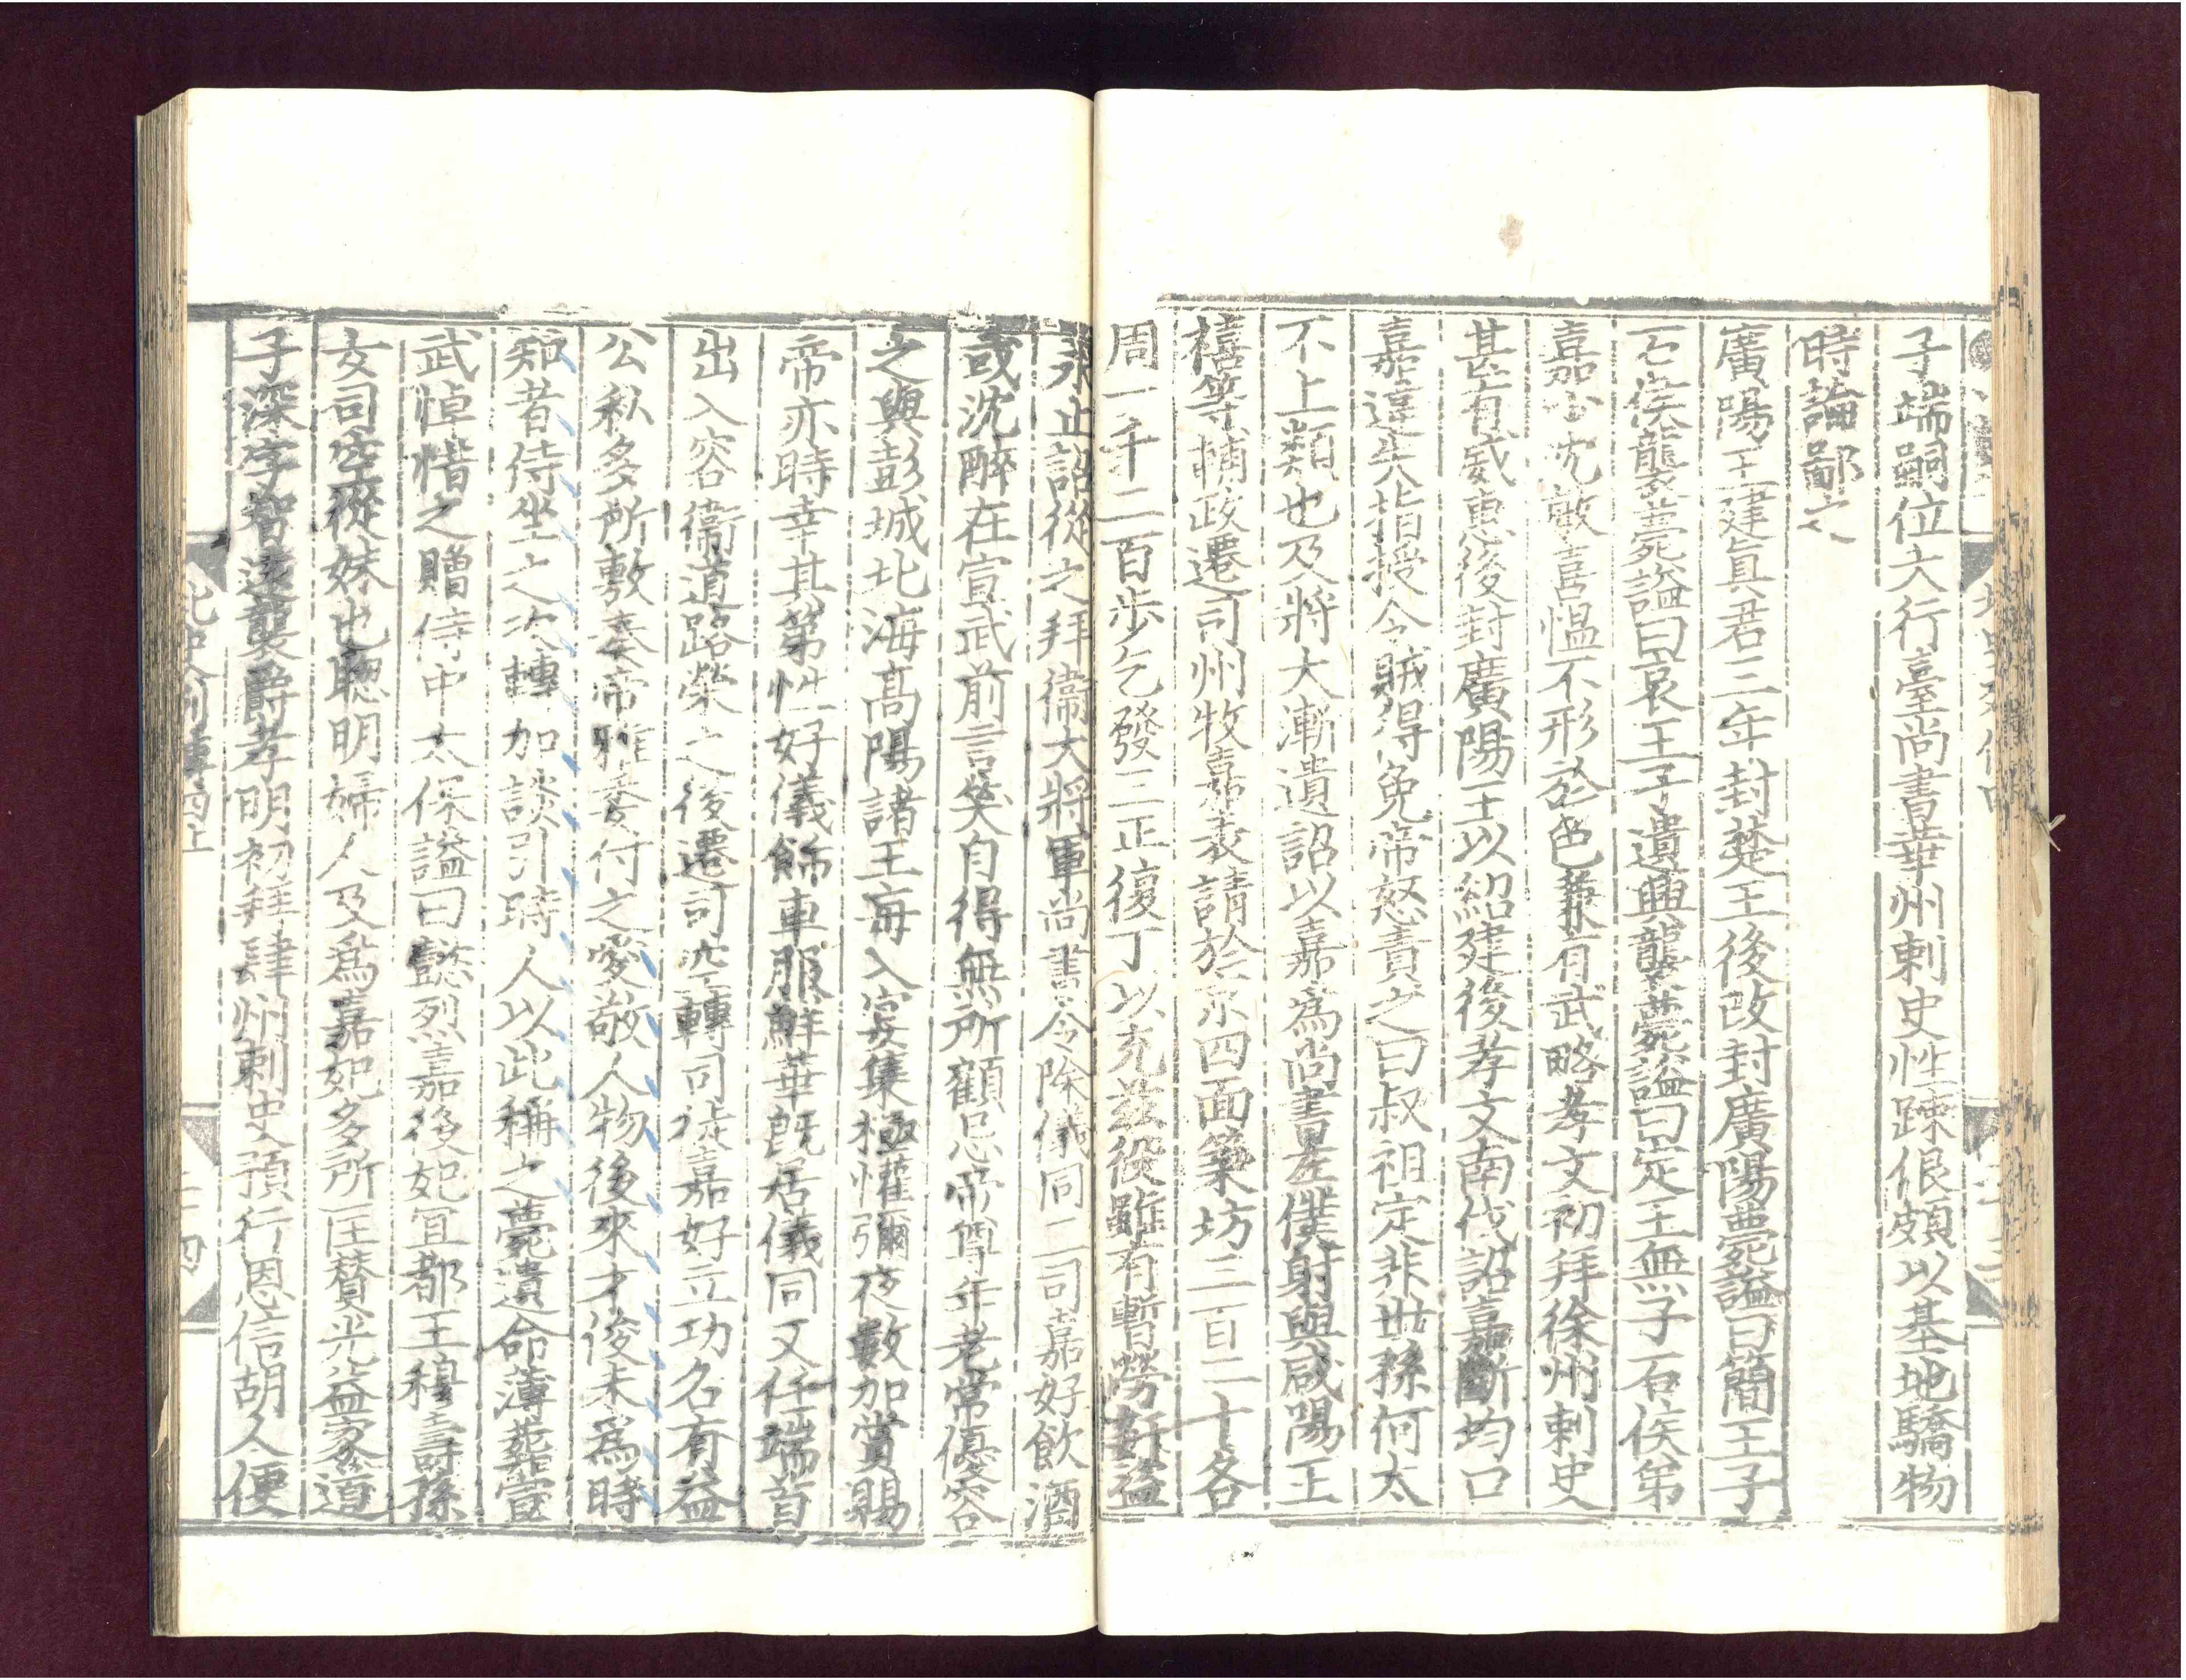 子端嗣位大行臺尚書華州刺史性踈佷頗以基地驕物
時論鄙之
廣陽王建眞君三年封楚王後改封廣陽薨謚曰簡王子
石侯襲薨謚曰哀王子遺興襲薨謚曰定王無子石侯弟
嘉少沈敏喜慍不形於色兼有武略孝文初拜徐州刺史
甚有威惠後封廣陽王以紹建後孝文南伐詔嘉斷均口
嘉違失指授令賊得免帝怒責之曰叔祖定非世孫何太
不上類也及將大漸遺詔以嘉爲尚書左僕射與咸陽王
禧等輔政遷司州牧嘉表請於京四面築坊三百二十各
周一千二百步乞發三正復丁以充茲役雖有暫勞姧盜
永止詔從之拜衞大將軍尚書令除儀同三司嘉好飲酒
或沈醉在宣武前言笑自得無所顧忌帝尊年老常優容
之與彭城北海髙陽諸王每入宴集極懽彌夜數加賞賜
帝亦時幸其第性好儀飾車服鮮華旣居儀同又任端首
出入容衞道路榮之後遷司空轉司徒嘉好立功名有益
公私多所敷奏帝雅委付之愛敬人物後來才俊未爲時
知者侍坐之次轉加談引時人以此稱之薨遺命薄葬宣
武悼惜之贈侍中太保謚曰懿烈嘉後妃宜都王穆壽孫
女司空從妹也聦明婦人及爲嘉妃多所匡贊光益家道
子深字智遠襲爵孝明初拜肆州刺史預行恩信胡人便